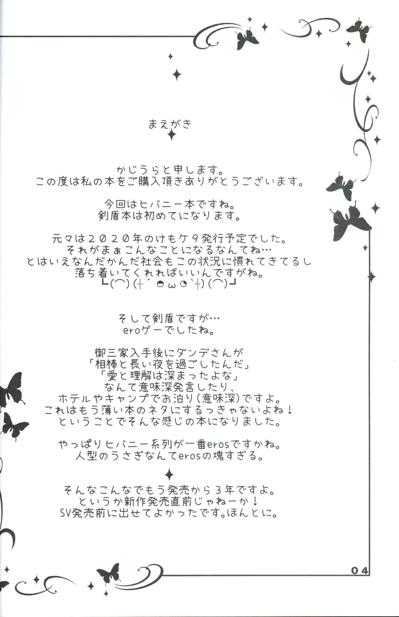 まえがき
かじうらと申します。
この度は私の本をご購入頂きありがとうございます。
今回はヒバニー本ですね。
剣盾本は初めてになります。
元々は2020年のけもケ9発行予定でした。
それがまぁこんなことになるなんてね…
とはいえなんだかんだ社会もこの状況に慣れてきてるし
落ち着いてくれればいいんですがね。
┗(⌒)(╬´◓ω◔`╬)(⌒)┛
そして剣盾ですが…
eroゲーでしたね。
御三家入手後にダンデさんが
「相棒と長い夜を過ごしたんだ」
「愛と理解は深まったよな」
なんて意味深発言したり、
ホテルやキャンプでお泊り(意味深)ですよ。
これはもう薄い本のネタにするっきゃないよね!
ということでそんな感じの本になりました。
やっぱりヒバニー系列が一番erosですかね。
人型のうさぎなんてerosの塊すぎる。
そんなこんなでもう発売から3年ですよ。
というか新作発売直前じゃねーか!
SV発売前に出せてよかったです。ほんとに。
04